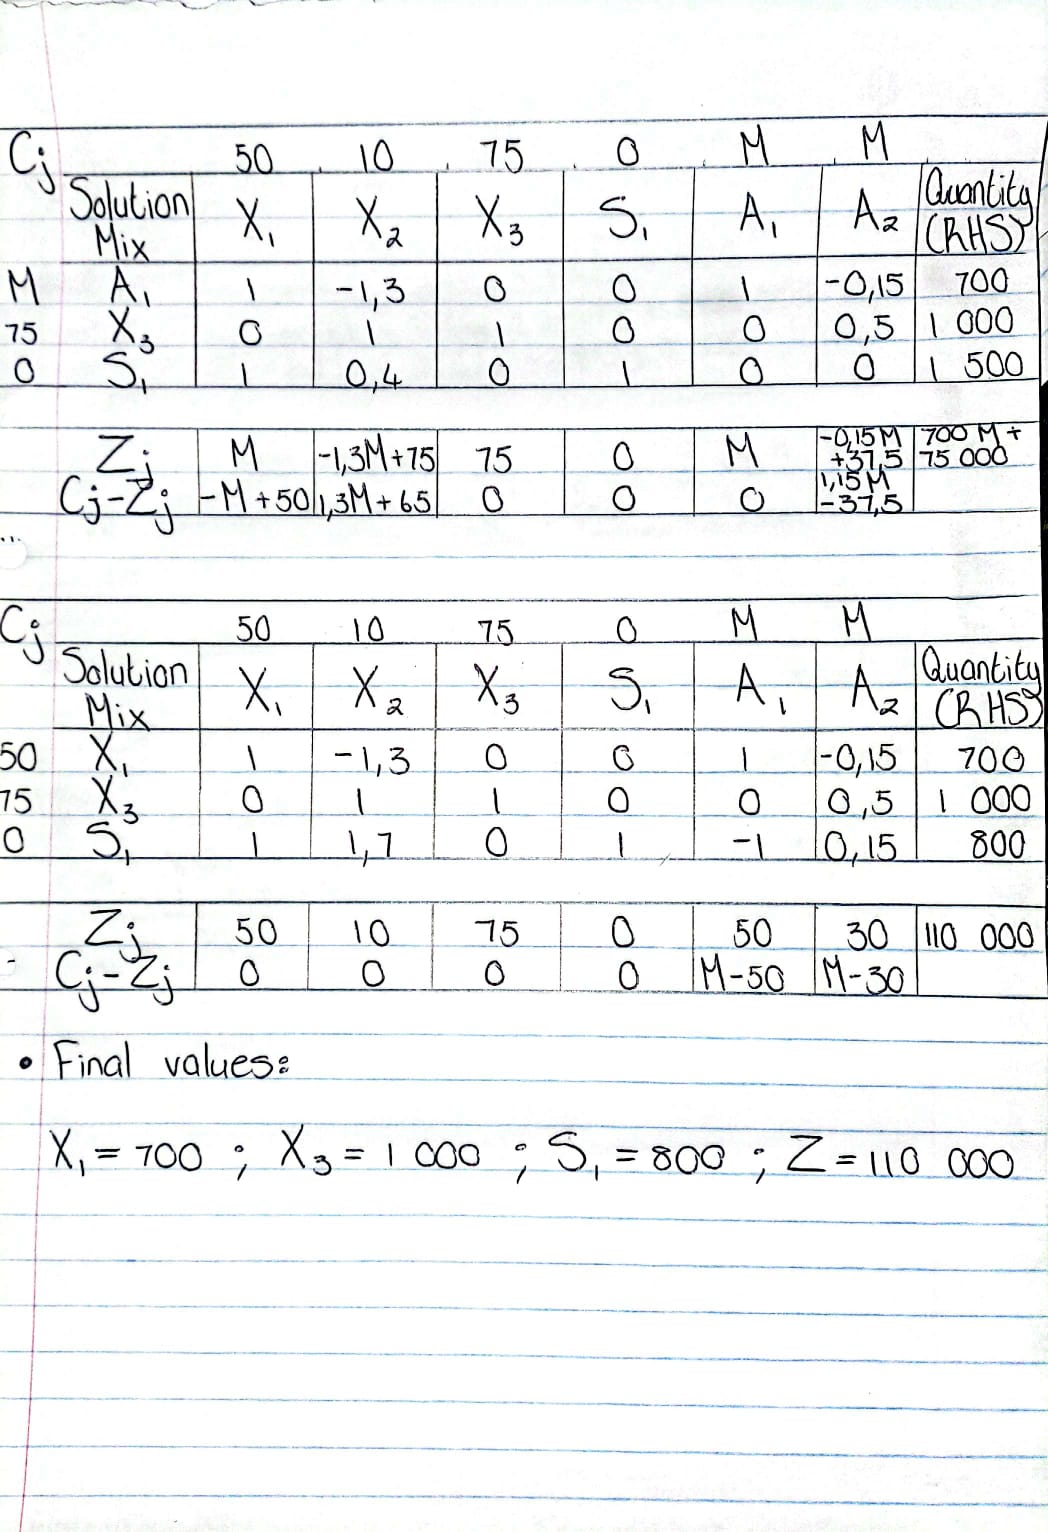 Cj 50 10 75 0 M M
Solution Mix X₁ X₂ X₃ S₁ A₁ A₂ Quantity (RHS)
M A₁ 1 -1,3 0 0 1 -0,15 700
75 X₃ 0 1 1 0 0 0,5 1 000
0 S₁ 1 0,4 0 1 0 0 1 500
Zj M -1,3M+75 75 0 M -0,15M +37,5 700 M + 75 000
Cj-Zj -M+50 1,3M+65 0 0 0 1,15M -37,5
Cj 50 10 75 0 M M
Solution Mix X₁ X₂ X₃ S₁ A₁ A₂ Quantity (RHS)
50 X₁ 1 -1,3 0 0 1 -0,15 700
75 X₃ 0 1 1 0 0 0,5 1 000
0 S₁ 1 1,7 0 1 -1 0,15 800
Zj 50 10 75 0 50 30 110 000
Cj-Zj 0 0 0 0 M-50 M-30
• Final values:
X₁ = 700 ; X₃ = 1 000 ; S₁ = 800 ; Z = 110 000